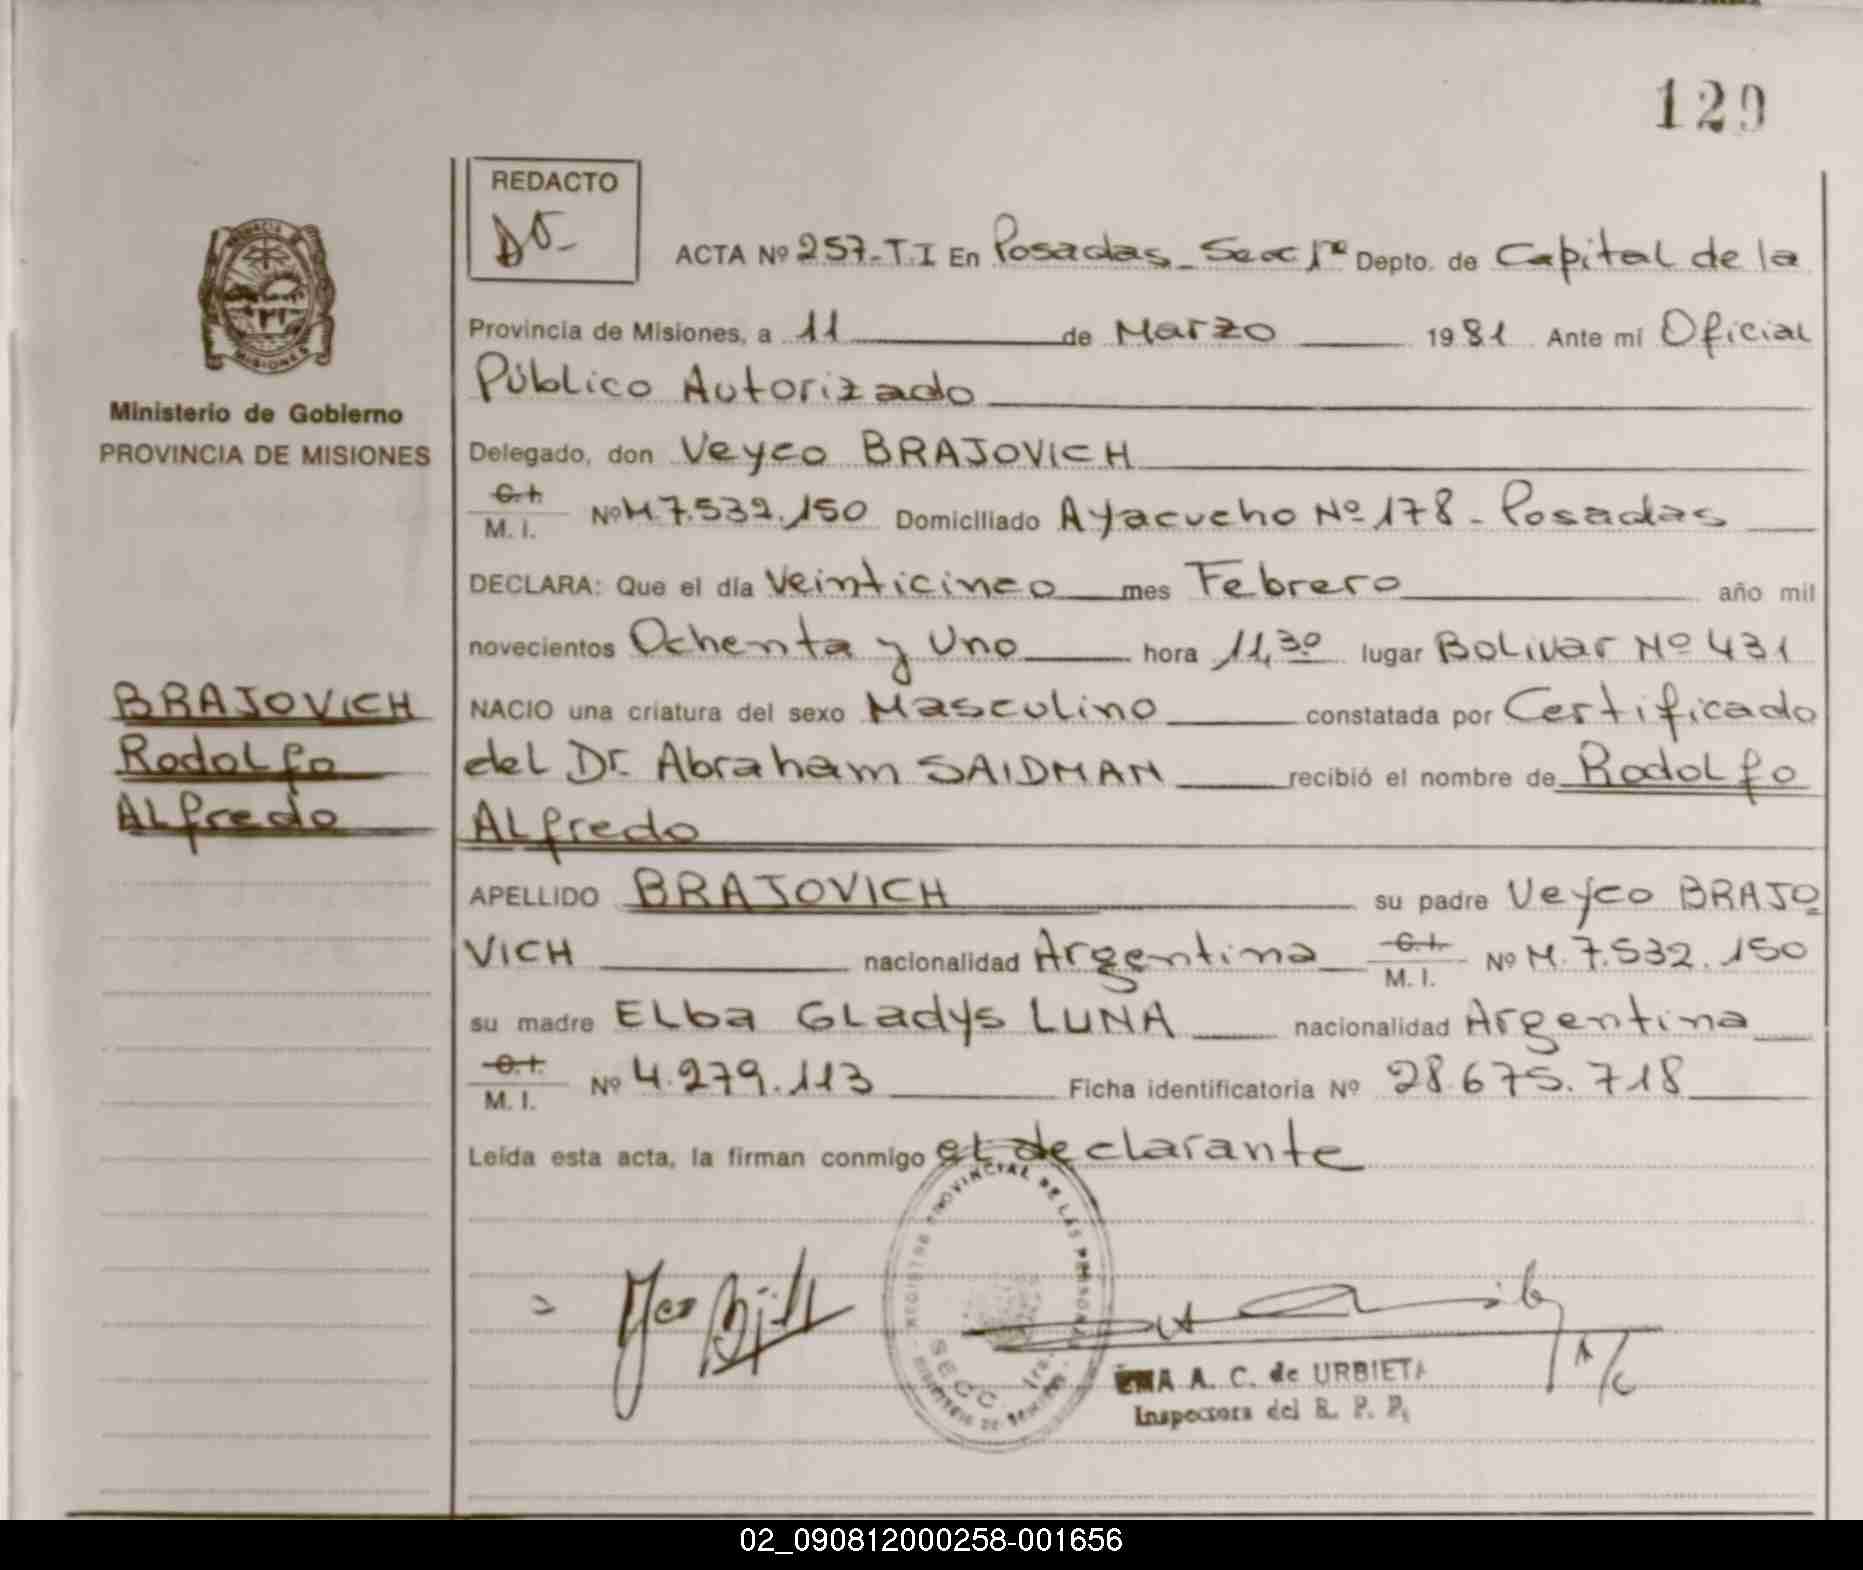 129
REDACTO
ACTA Nº 257-T.I En Posadas - Secc 1ª Depto. de Capital de la
Provincia de Misiones, a 11 de Marzo 1981 Ante mí Oficial
Público Autorizado
Ministerio de Gobierno
PROVINCIA DE MISIONES
Delegado, don Veyco BRAJOVICH
C.I.
M. I. Nº M.7.532.150 Domiciliado Ayacucho Nº 178 - Posadas
DECLARA: Que el día Veinticinco mes Febrero año mil
novecientos Ochenta y Uno hora 11,30 lugar Bolivar Nº 431
BRAJOVICH
Rodolfo
Alfredo
NACIO una criatura del sexo Masculino constatada por Certificado
del Dr. Abraham SAIDMAN recibió el nombre de Rodolfo
Alfredo
APELLIDO BRAJOVICH su padre Veyco BRAJO
VICH nacionalidad Argentina C.I. M. I. Nº M.7.532.150
su madre Elba Gladys LUNA nacionalidad Argentina
C.I. M. I. Nº 4.279.113 Ficha identificatoria Nº 28.675.718
Leída esta acta, la firman conmigo el declarante
REGISTRO PROVINCIAL DE LAS PERSONAS
SECC. 1ra.
A. C. de URBIETA
Inspectora del R. P. P.
02_090812000258-001656